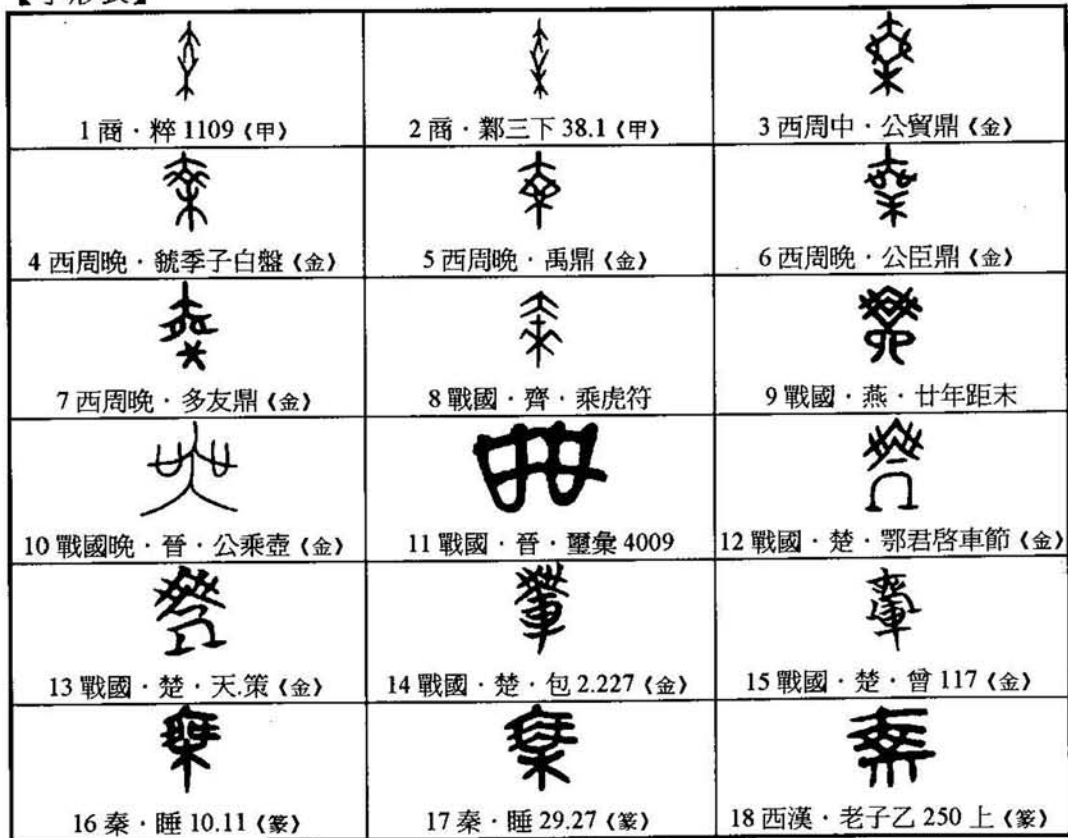 【字形表】
1 商·粹 1109《甲》
2 商·鄴三下 38.1《甲》
3 西周中·公貿鼎《金》
4 西周晚·虢季子白盤《金》
5 西周晚·禹鼎《金》
6 西周晚·公臣鼎《金》
7 西周晚·多友鼎《金》
8 戰國·齊·乘虎符
9 戰國·燕·廿年距末
10 戰國晚·晉·公乘壺《金》
11 戰國·晉·璽彙 4009
12 戰國·楚·鄂君啓車節《金》
13 戰國·楚·天.策《金》
14 戰國·楚·包 2.227《金》
15 戰國·楚·曾 117《金》
16 秦·睡 10.11《篆》
17 秦·睡 29.27《篆》
18 西漢·老子乙 250 上《篆》